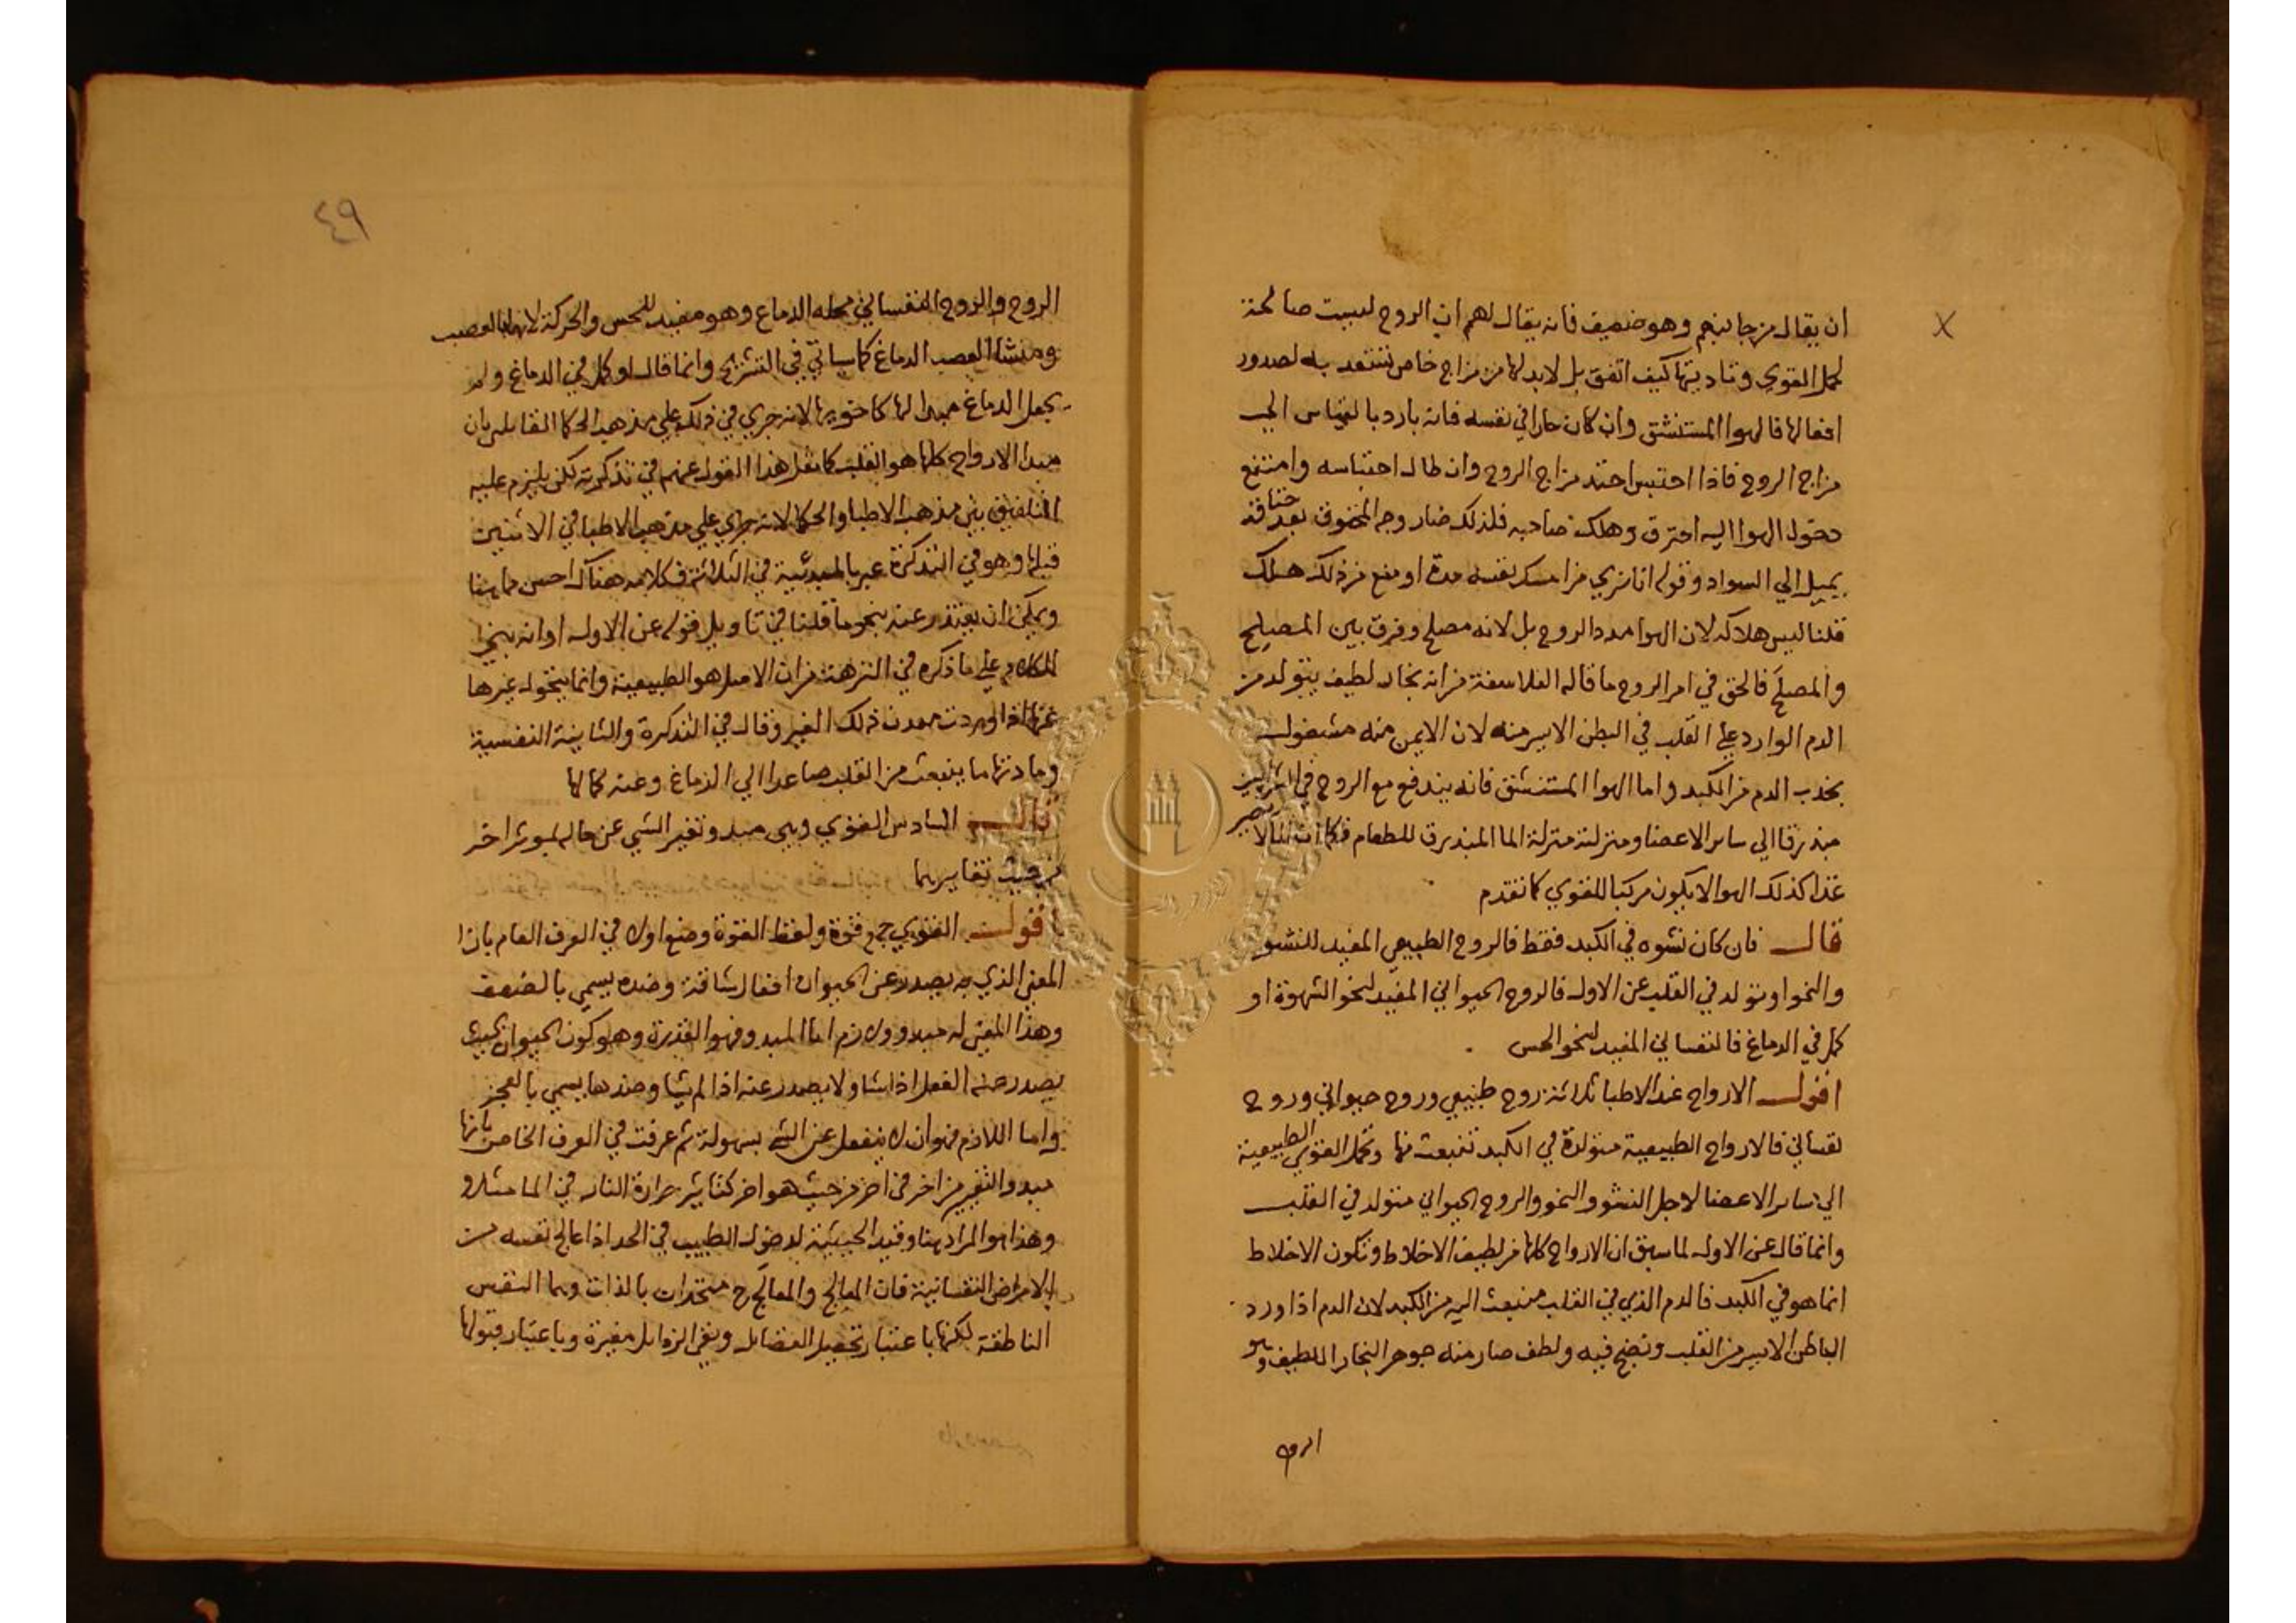 ان يقال من جانبهم وهو ضعيف فانه يقال لهم ان الروح ليست صالحة
لحمل القوي وتاديتها كيف اتفق بل لابد لها من مزاج خاص تستعد به لصدور
افعالها فالهوا المستنشق وان كان حارا في نفسه فانه بارد بالقياس الي
مزاج الروح فاذا احتبس احتد مزاج الروح وان طال احتباسه وامتنع
دخول الهوا اليه احترق وهلك صاحبه فلذلك صار وجه المخنوق بعد خناقه
يميل الي السواد وقوله انا نري من امسك نفسه مدة او منع من ذلك هلك
قلنا ليس هلاكه لان الهوا مدد الروح بل لانه مصلح وفرق بين المصلح
والمصلَح فالحق في امر الروح ما قاله الفلاسفة من انه بخار لطيف يتولد من
الدم الوارد علي القلب في البطن الايسر منه لان الايمن منه مشغول
بجذب الدم من الكبد واما الهوا المستنشق فانه يندفع مع الروح في الشرايين
مبذرقا الي ساير الاعضا ومنزلته منزلة الما المبذرق للطعام فكما ان الما لا يصير
غذا كذلك الهوا لا يكون مركبا للقوي كما تقدم
قال فان كان نشوه في الكبد فقط فالروح الطبيعي المفيد للنشو
والنمو او تولد في القلب عن الاول فالروح الحيواني المفيد لنحو الشهوة او
كمل في الدماغ فالنفساني المفيد لنحو الحس
اقول الارواح عند الاطبا ثلاثة روح طبيعي وروح حيواني وروح
نفساني فالارواح الطبيعية متولدة في الكبد تنبعث منها وتحمل القوي الطبيعية
الي ساير الاعضا لاجل النشو والنمو والروح الحيواني متولد في القلب
وانما قال عن الاول لما سبق ان الارواح كلها من لطيف الاخلاط وتكون الاخلاط
انما هو في الكبد فالدم الذي في القلب منبعث اليه من الكبد لان الدم اذا ورد
الباطن الايسر من القلب ونضج فيه ولطف صار منه جوهر البخار اللطيف وهو
الروح
٤٩
الروح والروح النفساني محله الدماغ وهو مفيد للحس والحركة لانهما بالعصب
ومنشا العصب الدماغ كما سياتي في التشريح وانما قال او كمل في الدماغ ولم
يجعل الدماغ مبدا لها كاخويها لانه جري في ذلك علي مذهب الحكما القايلين بان
مبدا الارواح كلها هو القلب كما نقل هذا القول عنهم في تذكرته لكن يلزم عليه
التلفيق بين مذهب الاطبا والحكما لانه جري علي مذهب الاطبا في الاثنين
قبلها وهو في التذكرة عبر بالمبدئية في الثلاثة فكلامه هناك احسن مما هنا
ويمكن ان يعتذر عنه بنحو ما قلنا في تاويل قوله عن الاول او انه بني
الكلام علي ما ذكره في النزهة من ان الاصل هو الطبيعية وانما يتحول غيرها
عنها اذا وردت معدن ذلك الغير وقال في التذكرة والثانية النفسية
ومادتها ما ينبعث من القلب صاعدا الي الدماغ وعنه كمالها
قال السادس القوي وهي مبدو تغير الشي عن حاله لموثر اخر
من حيث تغايرهما
اقول القوي جمع قوة ولفظ القوة وضع اولا في العرف العام بازا
المعني الذي به يصدر عن الحيوان افعال شاقة وضده يسمي بالضعف
وهذا المعني له مبدو ولازم اما المبدو فهو القدرة وهو كون الحيوان بحيث
يصدر منه الفعل اذا شا ولا يصدر عنه اذا لم يشا وضدها يسمي بالعجز
واما اللازم فهو ان لا ينفعل عن الشي بسهولة ثم عرفت في العرف الخاص بانها
مبدو التغير من اخر في اخر من حيث هو اخر كتاثير حرارة النار في الما مثلا و
وهذا هو المراد هنا وقيد الحيثية لدخول الطبيب في الحد اذا عالج نفسه من
الامراض النفسانية فان المعالِج والمعالَج ح متحدان بالذات وهما النفس
الناطقة لكنها باعتبار تحصيل الفضايل ونفي الرذايل مغيرة وباعتبار قبولها